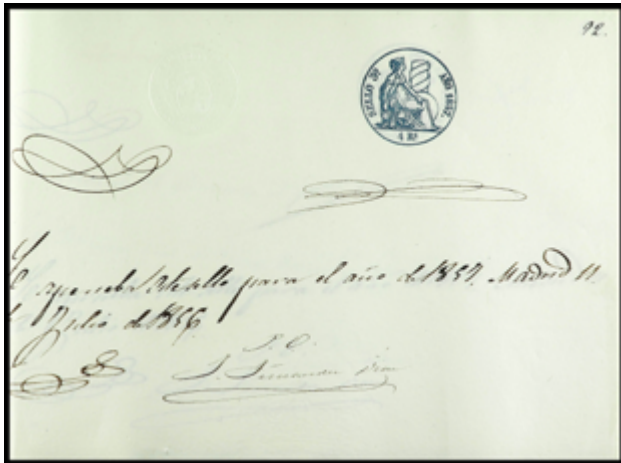 92.
SELLO 3º AÑO 1857.
4 Rs
aprueba sello para el año de 1857. Madrid 11.
Julio de 1856
P. O.
Fernandez